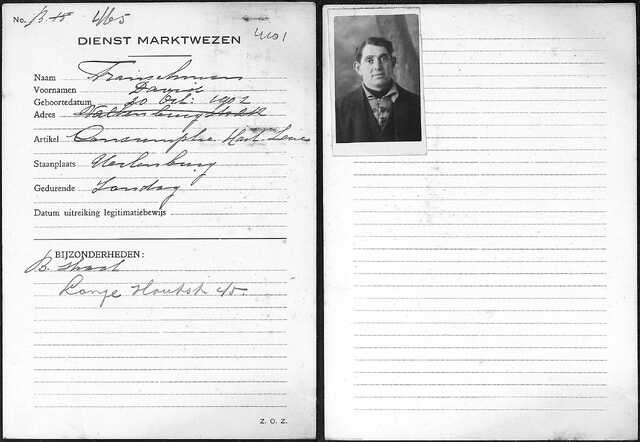 No. B. 4/65
4101
DIENST MARKTWEZEN
Naam Franschman
Voornamen David
Geboortedatum 20 Oct: 1902
Adres
Artikel Consumptie
Staanplaats Uilenburg
Gedurende Zondag
Datum uitreiking legitimatiebewijs
BIJZONDERHEDEN:
B. straat
Lange Houtstr 45.
Z. O. Z.